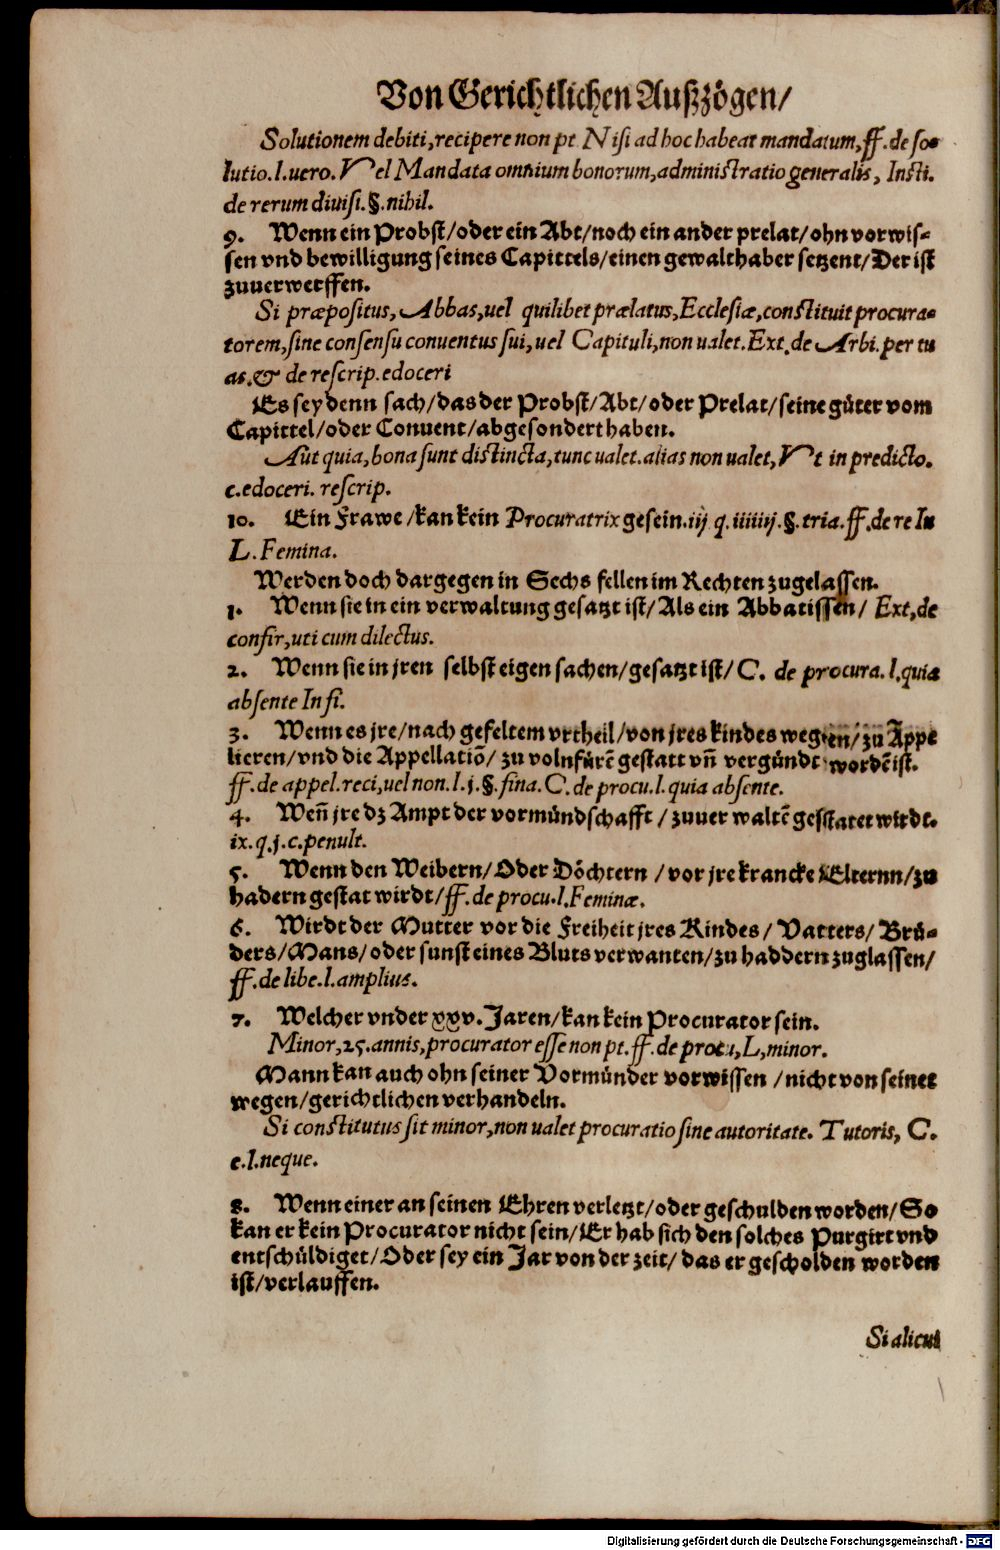 Von Gerichtlichen Außzögen/
Solutionem debiti, recipere non pt Nisi ad hoc habeat mandatum, ff. de so-
lutio. l. uero. Vel Mandata omnium bonorum, administratio generalis, Insti.
de rerum diuisi. §. nihil.
9. Wenn ein Probst/oder ein Abt/noch ein ander prelat/ohn vorwis-
sen vnd bewilligung seines Capittels/einen gewalthaber setzent/Der ist
zuuerwerffen.
Si præpositus, Abbas, uel quilibet prælatus, Ecclesiæ, constituit procura-
torem, sine consensu conuentus sui, uel Capituli, non ualet. Ext. de Arbi. per tu
as. & de rescrip. edoceri
Es sey denn sach/das der Probst/Abt/oder Prelat/seine güter vom
Capittel/oder Conuent/abgesondert haben.
Aut quia, bona sunt distincta, tunc ualet. alias non ualet, Vt in predicto.
c. edoceri. rescrip.
10. Ein Frawe/kan kein Procuratrix gesein. iij q. iiiiij. §. tria. ff. de re Iu
L. Femina.
Werden doch dargegen in Sechs fellen im Rechten zugelassen.
1. Wenn sie in ein verwaltung gesatzt ist/Als ein Abbatissen/ Ext, de
confir, uti cum dilectus.
2. Wenn sie in jren selbst eigen sachen/gesatzt ist/ C. de procura. l. quia
absente In fi.
3. Wenn es jre/nach gefeltem vrtheil/von jres kindes wegen/zu Appe
lieren/vnd die Appellatiõ/zu volnfürẽ gestatt vñ vergündt wordẽ ist.
ff. de appel. reci, uel non. l. j. §. fina. C. de procu. l. quia absente.
4. Weñ jre dz Ampt der vormündschafft/zuuer waltẽ gestatet wirdt.
ix. q. j. c. penult.
5. Wenn den Weibern/Oder Döchtern/vor jre krancke Elternn/zu
hadern gestat wirdt/ff. de procu. l. Feminæ.
6. Wirdt der Mutter vor die Freiheit jres Kindes/ Vatters/ Brü-
ders/Mans/oder sunst eines Bluts verwanten/zu haddern zuglassen/
ff. de libe. l. amplius.
7. Welcher vnder xxv. Jaren/kan kein Procurator sein.
Minor, 25. annis, procurator esse non pt. ff. de procu, L, minor.
Mann kan auch ohn seiner Vormünder vorwissen/nicht von seinet
wegen/gerichtlichen verhandeln.
Si constitutus sit minor, non ualet procuratio sine autoritate. Tutoris, C.
e. l. neque.
8. Wenn einer an seinen Ehren verletzt/oder geschulden worden/So
kan er kein Procurator nicht sein/Er hab sich den solches Purgirt vnd
entschüldiget/Oder sey ein Jar von der zeit/das er gescholden worden
ist/verlauffen.
Si alicui
Digitalisierung gefördert durch die Deutsche Forschungsgemeinschaft - DFG